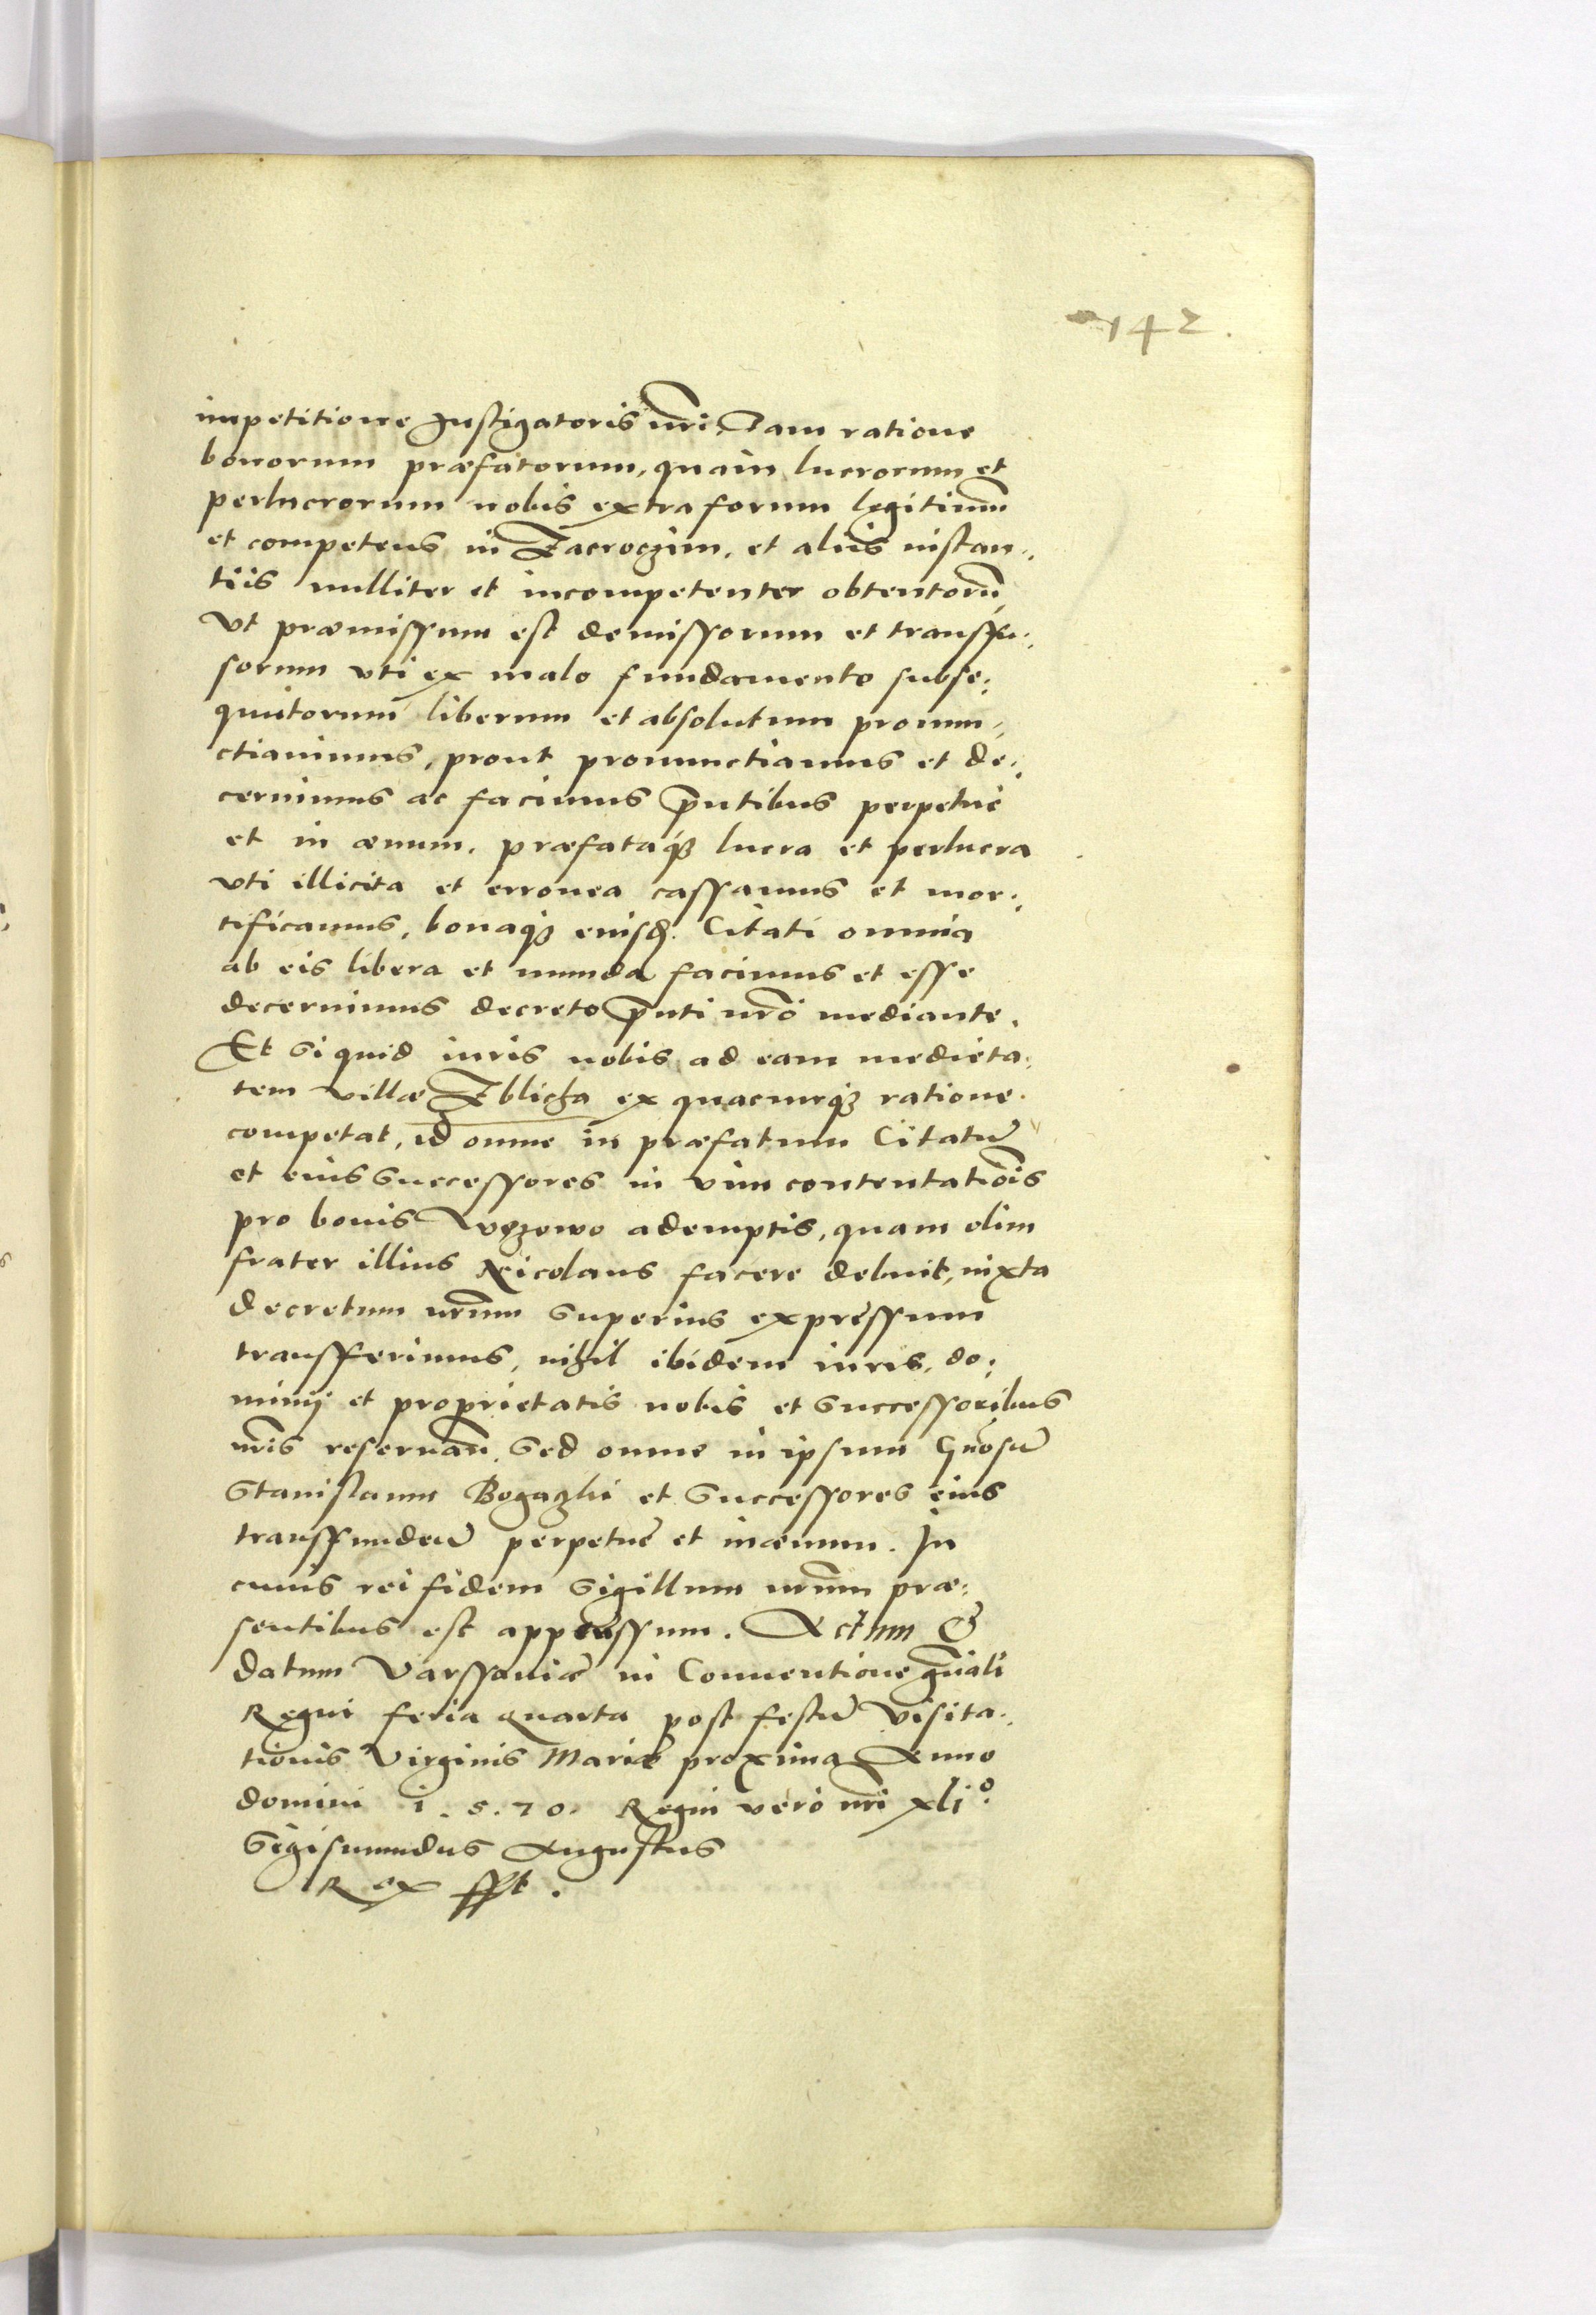 142.
impetitione Instigatoris nri, Tam ratione
bonorum præfatorum, quam lucrorum et
perlucrorum nobis extra forum legitimũ
et competens in Zacroczim, et aliis instan:
tiis nulliter et incompetenter obtentorũ,
Vt præmissum est demissorum et transfu:
sorum vti ex malo fundamento subse:
quutorum liberum et absolutum pronun:
ctiauimus, prout pronunctiamus et de:
cernimus ac facimus p̃ntibus perpetue
et in æuum. præfataqꝫ lucra et perlucra
vti illicita et erronea cassamus et mor:
tificamus, bonaqꝫ eiusd. Citati omnia
ab eis libera et munda facimus et esse
decernimus decreto p̃nti nrõ mediante.
Et si quid iuris nobis ad eam medieta:
tem villæ Zblicha ex quacunqꝫ ratione
competat, id omne in præfatum Citatũ
et eius successores in vim contentatiõis
pro bonis Wgzowo ademptis, quam olim
frater illius Nicolaus facere debuit, iuxta
decretum nrũm superius expressum
transfferimus, nihil ibidem iuris, do:
minij et proprietatis nobis et successoribus
nris reseruañ. sed omne in ipsum Gñosũ
Stanislaum Bogaczki et successores eius
transfundeñ perpetue et in æuum. In
cuius rei fidem sigillum nrũm præ:
sentibus est appressum. Actum &
datum Varssauiæ in Conuentione gñali
Regni feria quarta post festũ Visita:
tionis Virginis Mariæ proxima Anno
domini 1.5.70. Regni vero nri xliº.
Sigismundus Augustus
Rex sspt.